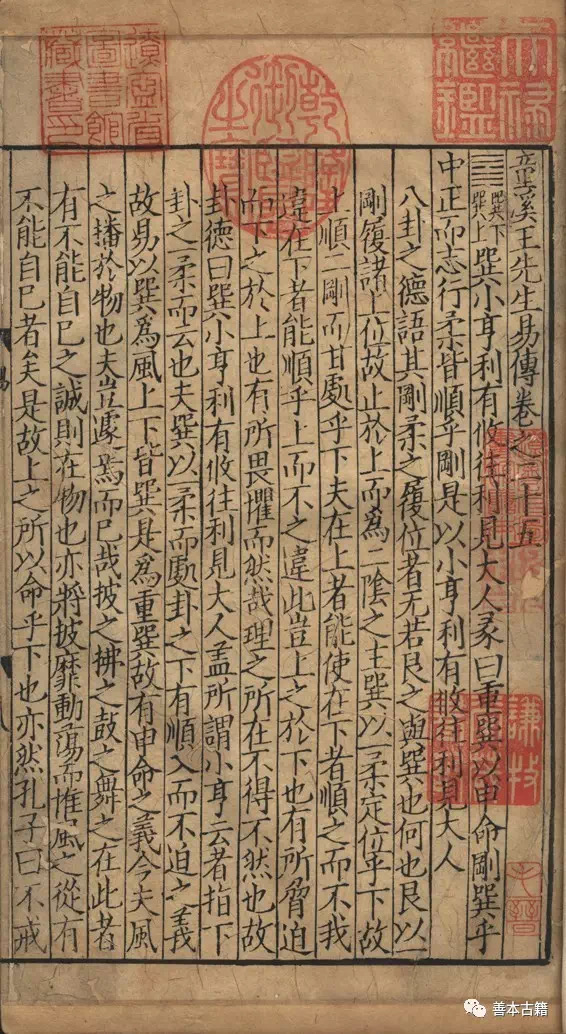 童溪王先生易傳卷之二十五
巽下巽上 巽小亨利有攸往利見大人彖曰重巽以申命剛巽乎
中正而志行柔皆順乎剛是以小亨利有攸往利見大人
八卦之德語其剛柔之履位者无若艮之與巽也何也艮以一
剛履諸上位故止於上而為二陰之主巽以一柔定位乎下故
上順二剛而甘處乎下夫在上者能使在下者順之而不我
違在下者能順乎上而不之違此豈上之於下也有所脅迫
而下之於上也有所畏懼而然哉理之所在不得不然也故
卦德曰巽小亨利有攸往利見大人蓋所謂小亨云者指下
卦之一柔而云也夫巽以一柔而處卦之下有順入而不迫之義
故易以巽為風上下皆巽是為重巽故有申命之義今夫風
之播於物也夫豈遽焉而已哉披之拂之鼓之舞之在此者
有不能自已之誠則在物也亦將披靡動蕩而惟風之從有
不能自已者矣是故上之所以命乎下也亦然孔子曰不戒
天祿繼鑑
乾隆御覽之寶
遼寧省圖書館藏書印
謙牧
善本古籍